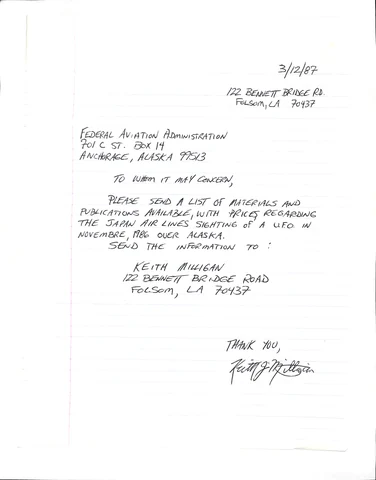 3/12/87
122 BENNETT BRIDGE RD.
FOLSOM, LA 70437
FEDERAL AVIATION ADMINISTRATION
701 C ST. BOX 14
ANCHORAGE, ALASKA 99513
TO WHOM IT MAY CONCERN,
PLEASE SEND A LIST OF MATERIALS AND
PUBLICATIONS AVAILABLE, WITH PRICES REGARDING
THE JAPAN AIR LINES SIGHTING OF A U.F.O. IN
NOVEMBRE, 1986 OVER ALASKA.
SEND THE INFORMATION TO :
KEITH MILLIGAN
122 BENNETT BRIDGE ROAD
FOLSOM, LA 70437
THANK YOU,
Keith J Milligan